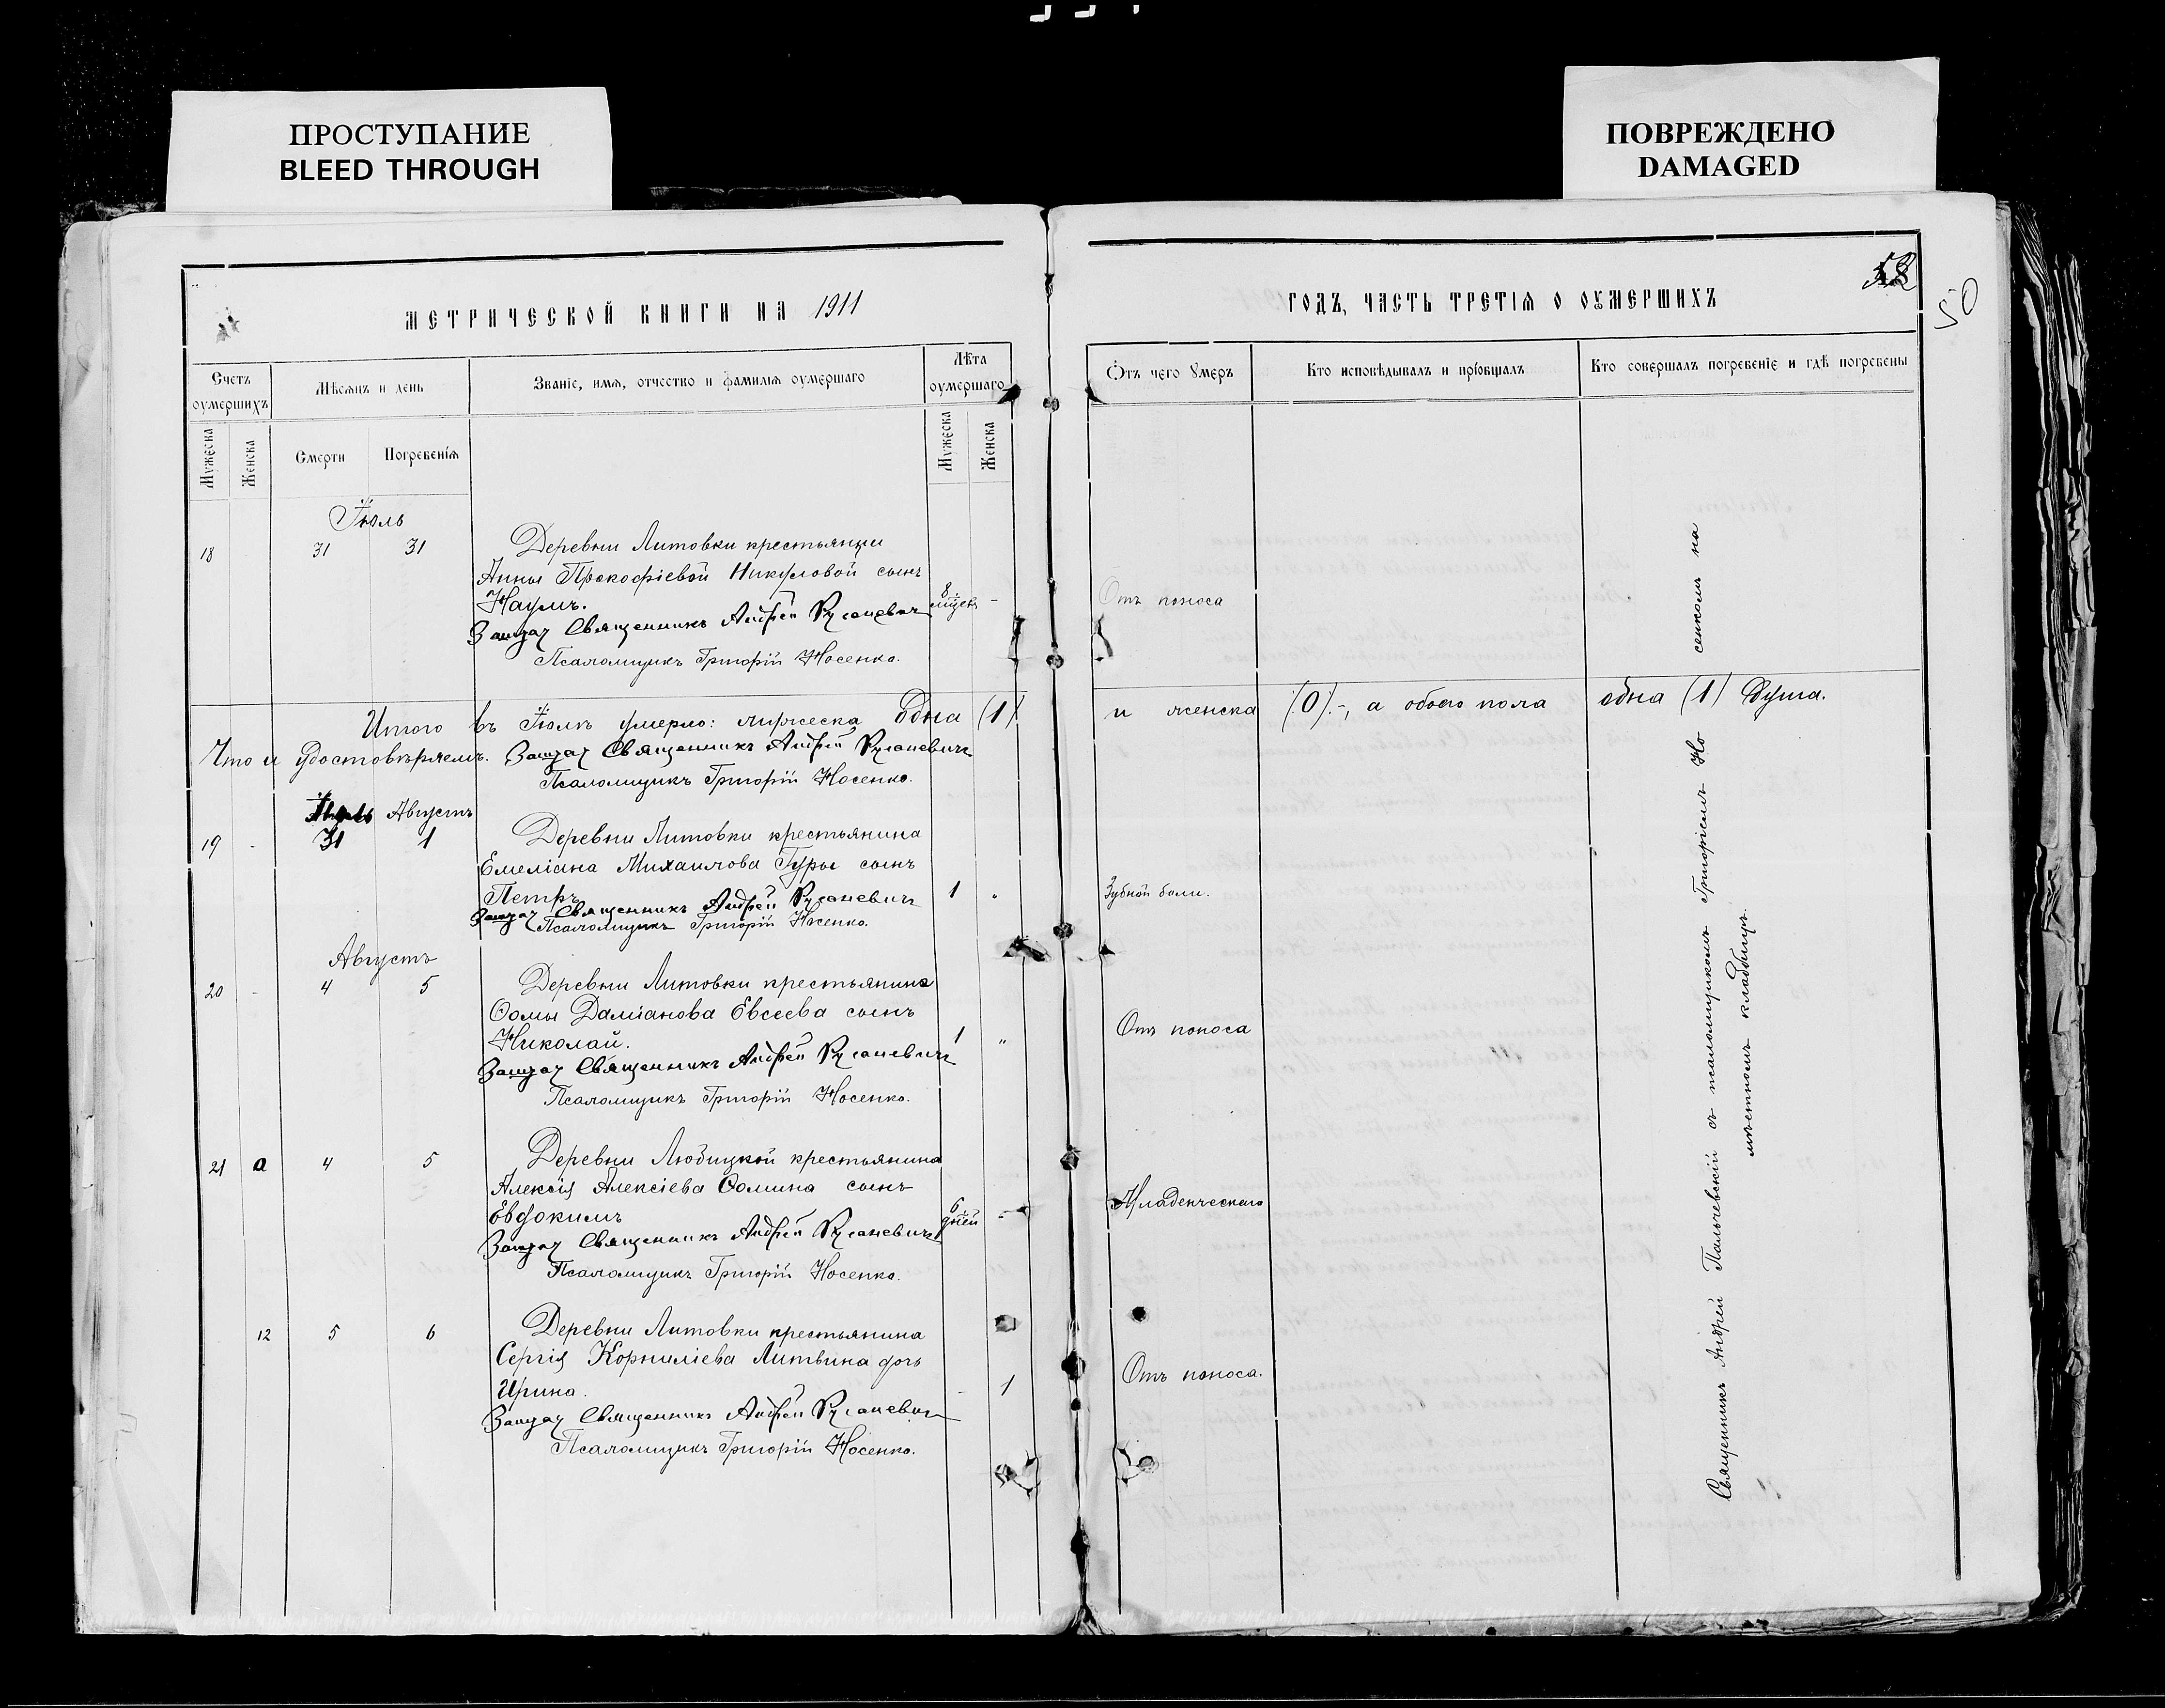 ПРОСТУПАНИЕ
BLEED THROUGH
ПОВРЕЖДЕНО
DAMAGED
50
МЕТРИЧЕСКОЙ КНИГИ НА 1911
ГОДЪ, ЧАСТЬ ТРЕТІЯ О ОУМЕРШИХЪ
Счетъ оумершихъ
Мѣсяцъ и день
Званіе, имя, отчество и фамилія оумершаго
Лѣта оумершаго
Отъ чего умеръ
Кто исповѣдывалъ и пріобщалъ
Кто совершалъ погребеніе и гдѣ погребены
Мужеска
Женска
Смерти
Погребенія
Мужеска
Женска
Іюль
18 31 31 Деревни Литовки крестьянки
Анны Прокофіевой Никуловой сынъ
Наумъ. 8 мѣсец. - Отъ поноса
Священникъ Андрей
Псаломщикъ Григорій Носенко.
Итого въ Іюлѣ умерло: мужеска одна (1) и женска (0)., а обоего пола одна (1) душа.
Что и удостовѣряемъ. Священникъ Андрей
Псаломщикъ Григорій Носенко.
Августъ
19 - 31 1 Деревни Литовки крестьянина
Емеліана Михаилова Гуры сынъ
Петръ 1 " Зубной боли.
Священникъ Андрей
Псаломщикъ Григорій Носенко.
Августъ
20 - 4 5 Деревни Литовки крестьянина
Ѳомы Даміанова Евсеева сынъ
Николай. 1 " Отъ поноса
Священникъ Андрей
Псаломщикъ Григорій Носенко.
21 4 5 Деревни Любицкой крестьянина
Алексія Алексіева Ѳомина сынъ
Евдокимъ 6 дней - Младенческаго
Священникъ Андрей
Псаломщикъ Григорій Носенко.
12 5 6 Деревни Литовки крестьянина
Сергія Корниліева Литвина дочь
Ирина. - 1 Отъ поноса.
Священникъ Андрей
Псаломщикъ Григорій Носенко.
Священникъ Андрей Пальчевскій съ псаломщикомъ Григоріемъ Носенкомъ на
мѣстномъ кладбищѣ.